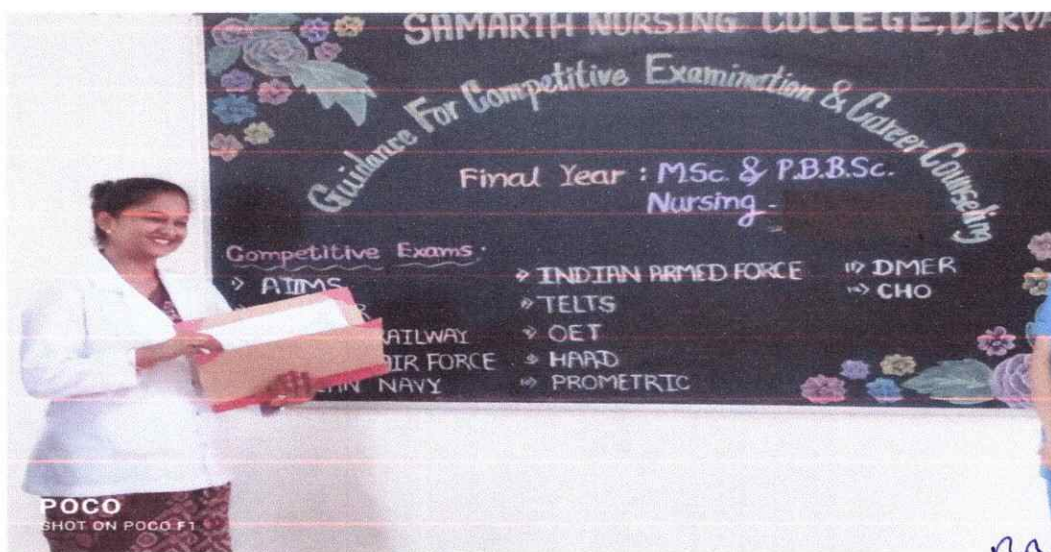 SAMARTH NURSING COLLEGE, DERVA
Guidance For Competitive Examination & Career Counseling
Final Year : MSc. & P.B.B.Sc.
Nursing -
Competitive Exams.
» AIIMS
AILWAY
AIR FORCE
AN NAVY
» INDIAN ARMED FORCE
» TELTS
» OET
» HAAD
» PROMETRIC
» DMER
» CHO
POCO
SHOT ON POCO F1